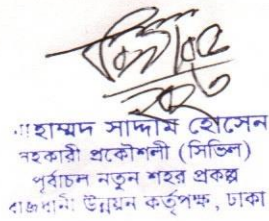 মোহাম্মদ সাদ্দাম হোসেন
সহকারী প্রকৌশলী (সিভিল)
পূর্বাচল নতুন শহর প্রকল্প
রাজধানী উন্নয়ন কর্তৃপক্ষ, ঢাকা